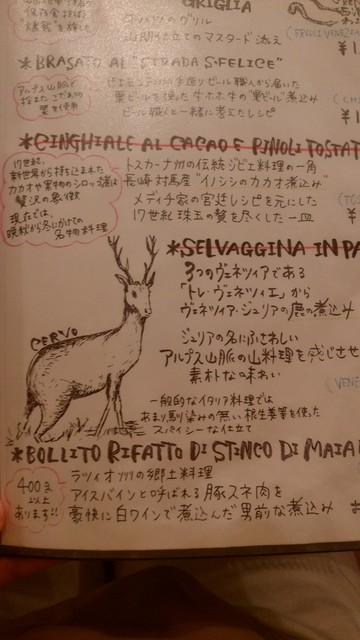 GRIGLIA
(FRIULI VENEZIA
*BRASATO AL "STRADA S.FELICE"
アルプス山脈で
栗を使用
ピエモンテ州の手造りビール職人から届いた
栗ビールを使った牛ホホ肉の"栗ビール"煮込み
ビール職人と一緒に考えたレシピ
*CINGHIALE AL CACAO E PINOLI TOSTAT
17世紀、
新世界から持ち込まれた
カカオや果物のシロップ漬は
贅沢の象徴
現在では、
晩秋から冬にかけての
名物料理
トスカーナ州の伝統ジビエ料理の一角
長崎対馬産"イノシシのカカオ煮込み"
メディチ家の宮廷レシピを元にした
17世紀珠玉の贅を尽くした一皿
*SELVAGGINA IN PA
3つのヴェネツィアである
「トレ・ヴェネツィエ」から
ヴェネツィア・ジュリアの鹿の煮込み
ジュリアの名にふさわしい
アルプス山脈の山料理を感じさせ
素朴な味わい
(VENE
一般的なイタリア料理では
あまり馴染みの無い、根生姜等を使った
スパイシーな仕立て
CERVO
*BOLLITO RIFATTO DI STINCO DI MAIA
400g
以上
あります!!
ラツィオ州の郷土料理
アイスバインと呼ばれる豚スネ肉を
豪快に白ワインで煮込んだ男前な煮込み